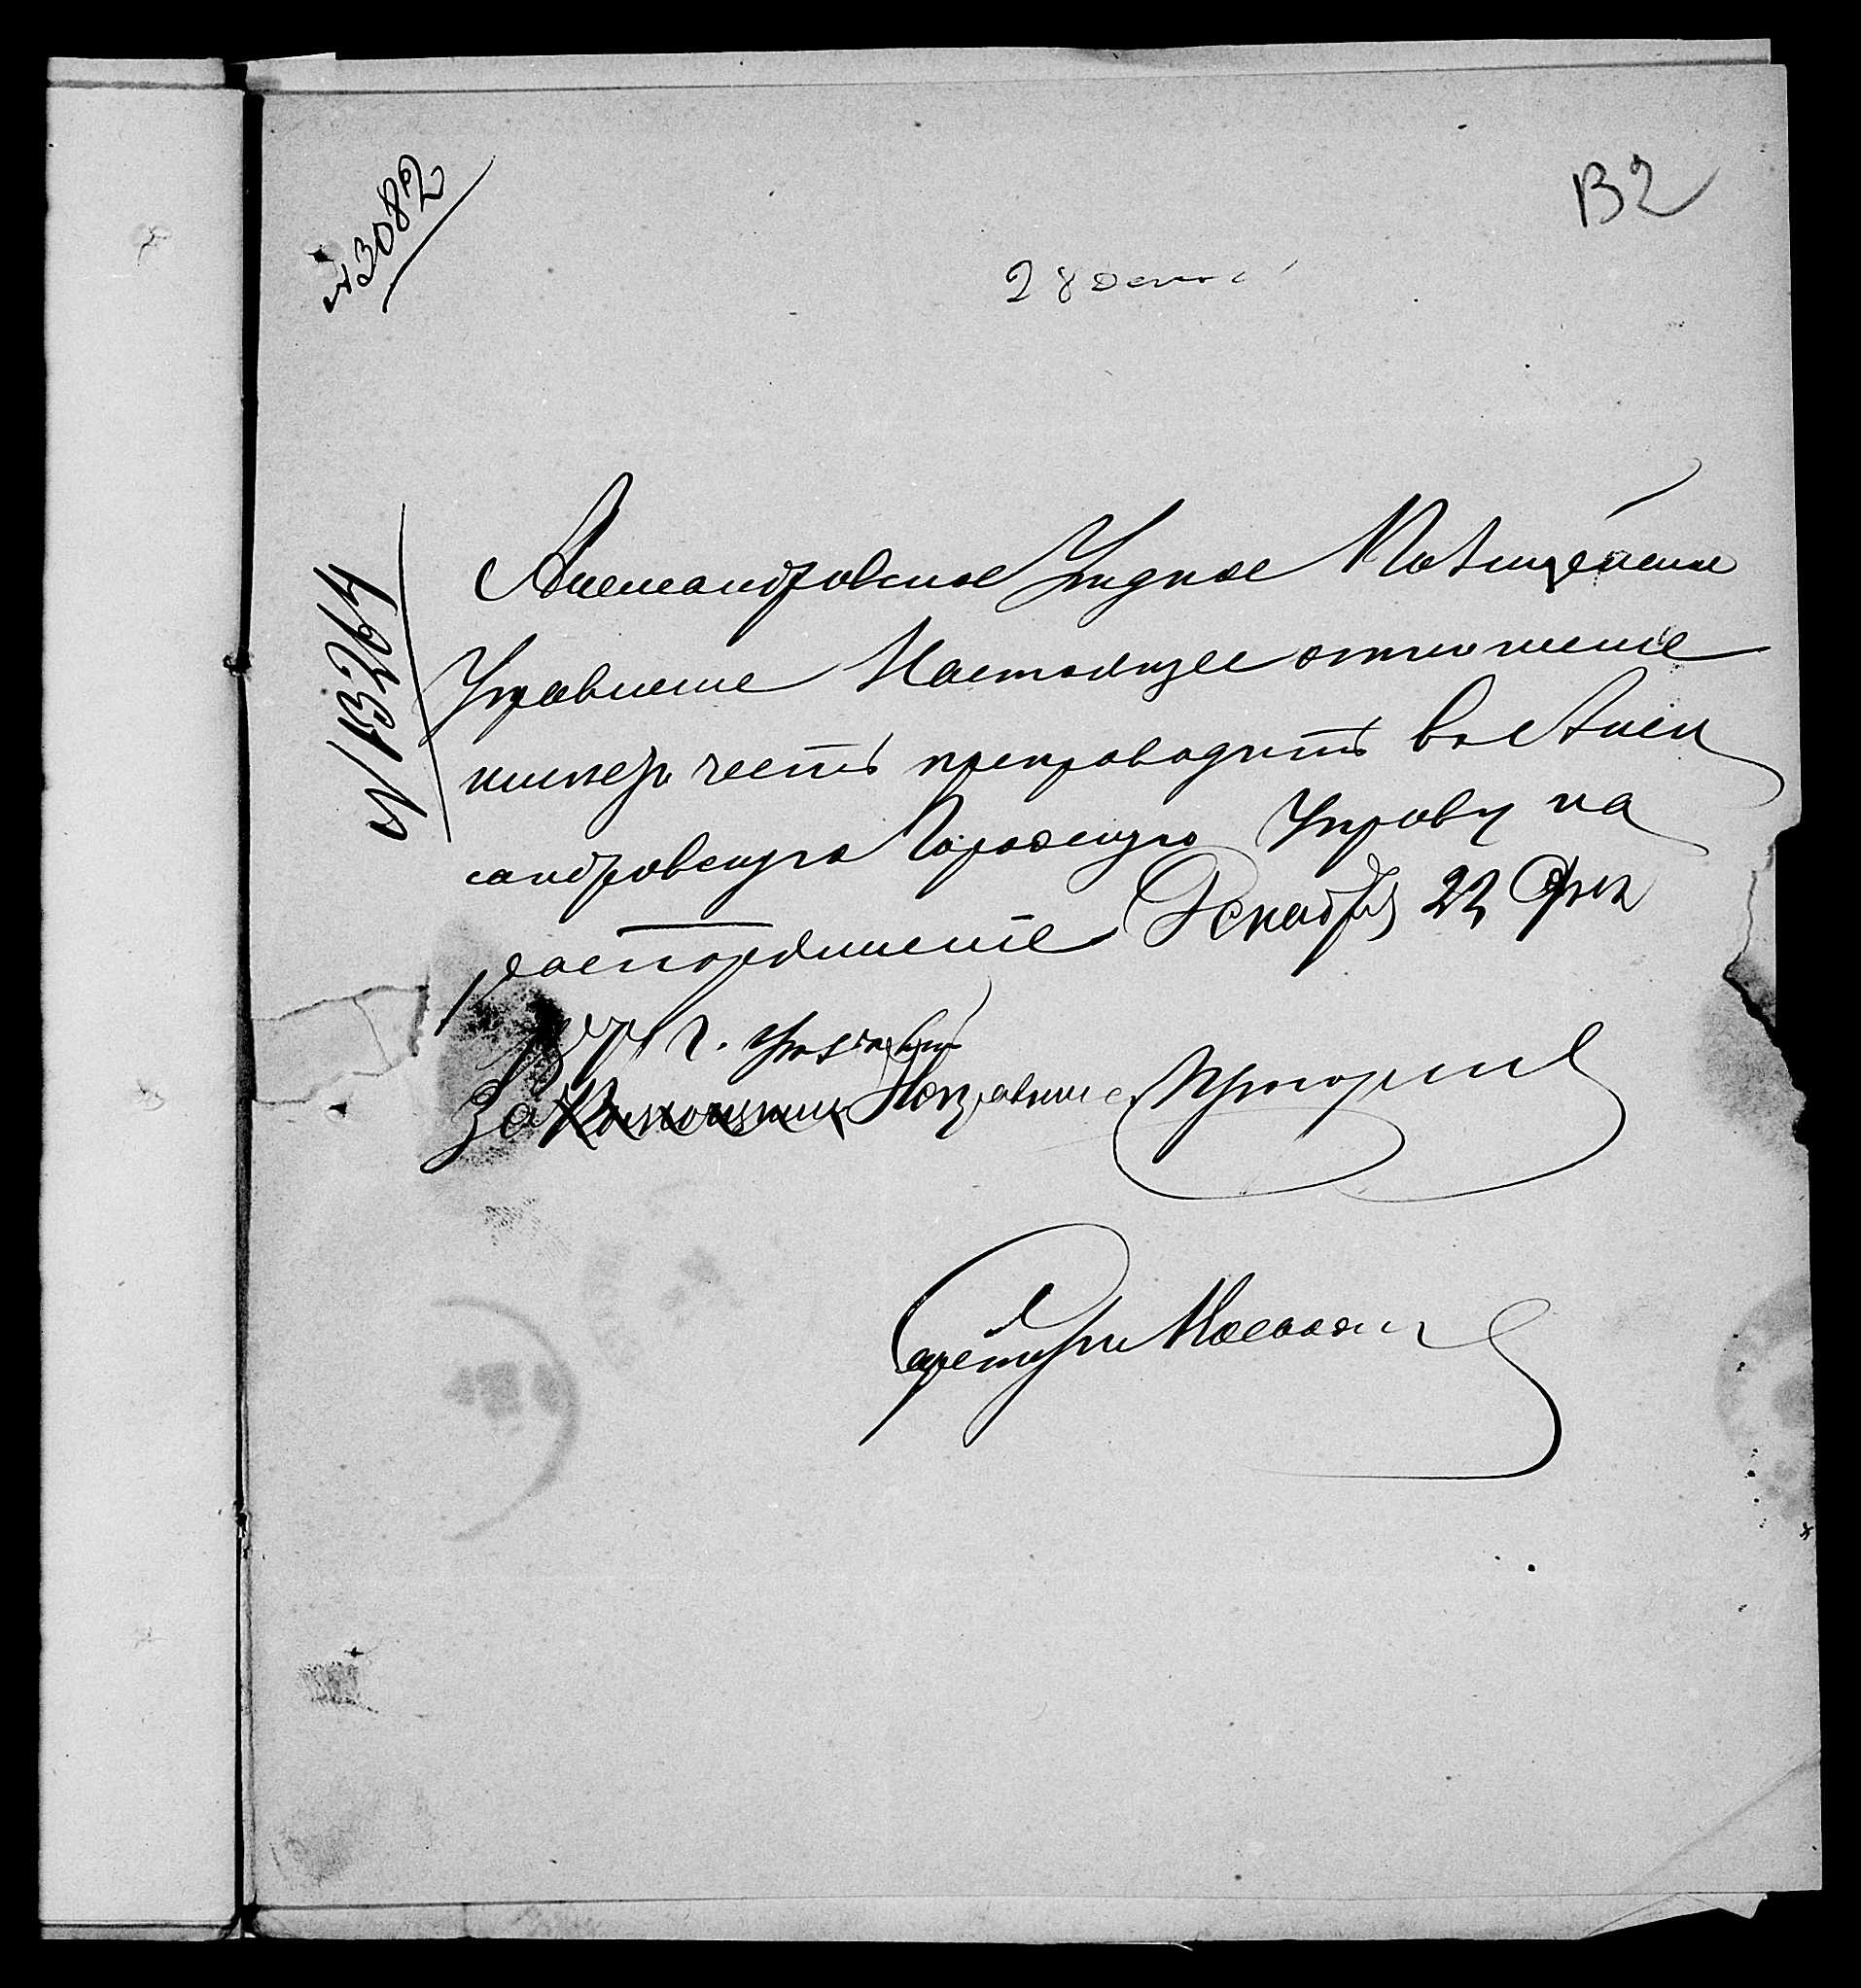 № 3082
132
28 Дек
№ 13264
Александровское Уездное Полицейское
Управленіе Настоящее отношеніе
имеетъ честь препроводить въ Алек
сандровскую Городскую Управу на
распоряженіе Декабря 22 дня
г. Уездный
За Исправника
Секретарь